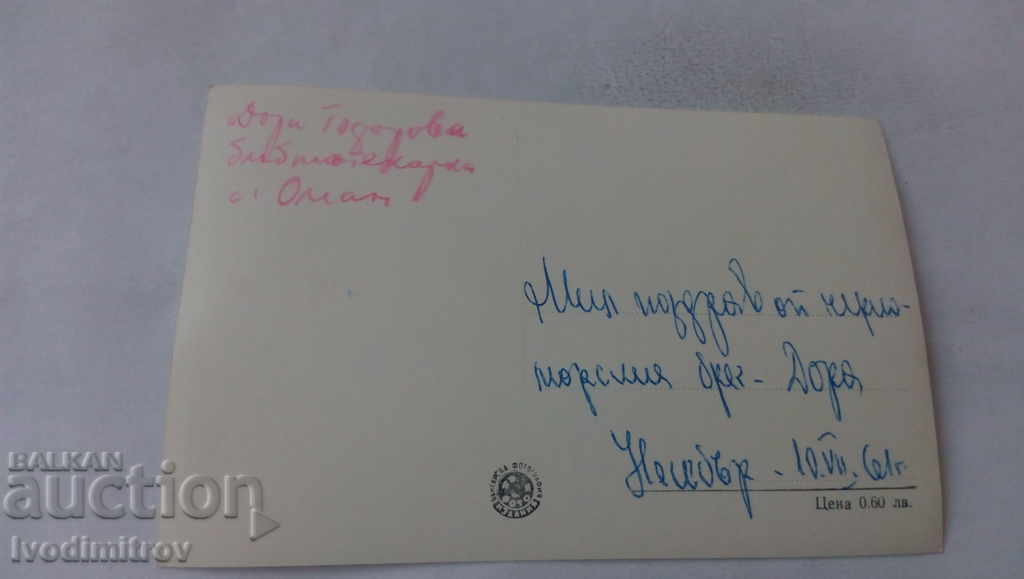 Дора Тодорова
библиотекарка
Мил поздрав от черно-
морския бряг - Дора
Несебър - 10.VII.61г.
Цена 0.60 лв.
BALKAN
auction
Ivodimitrov